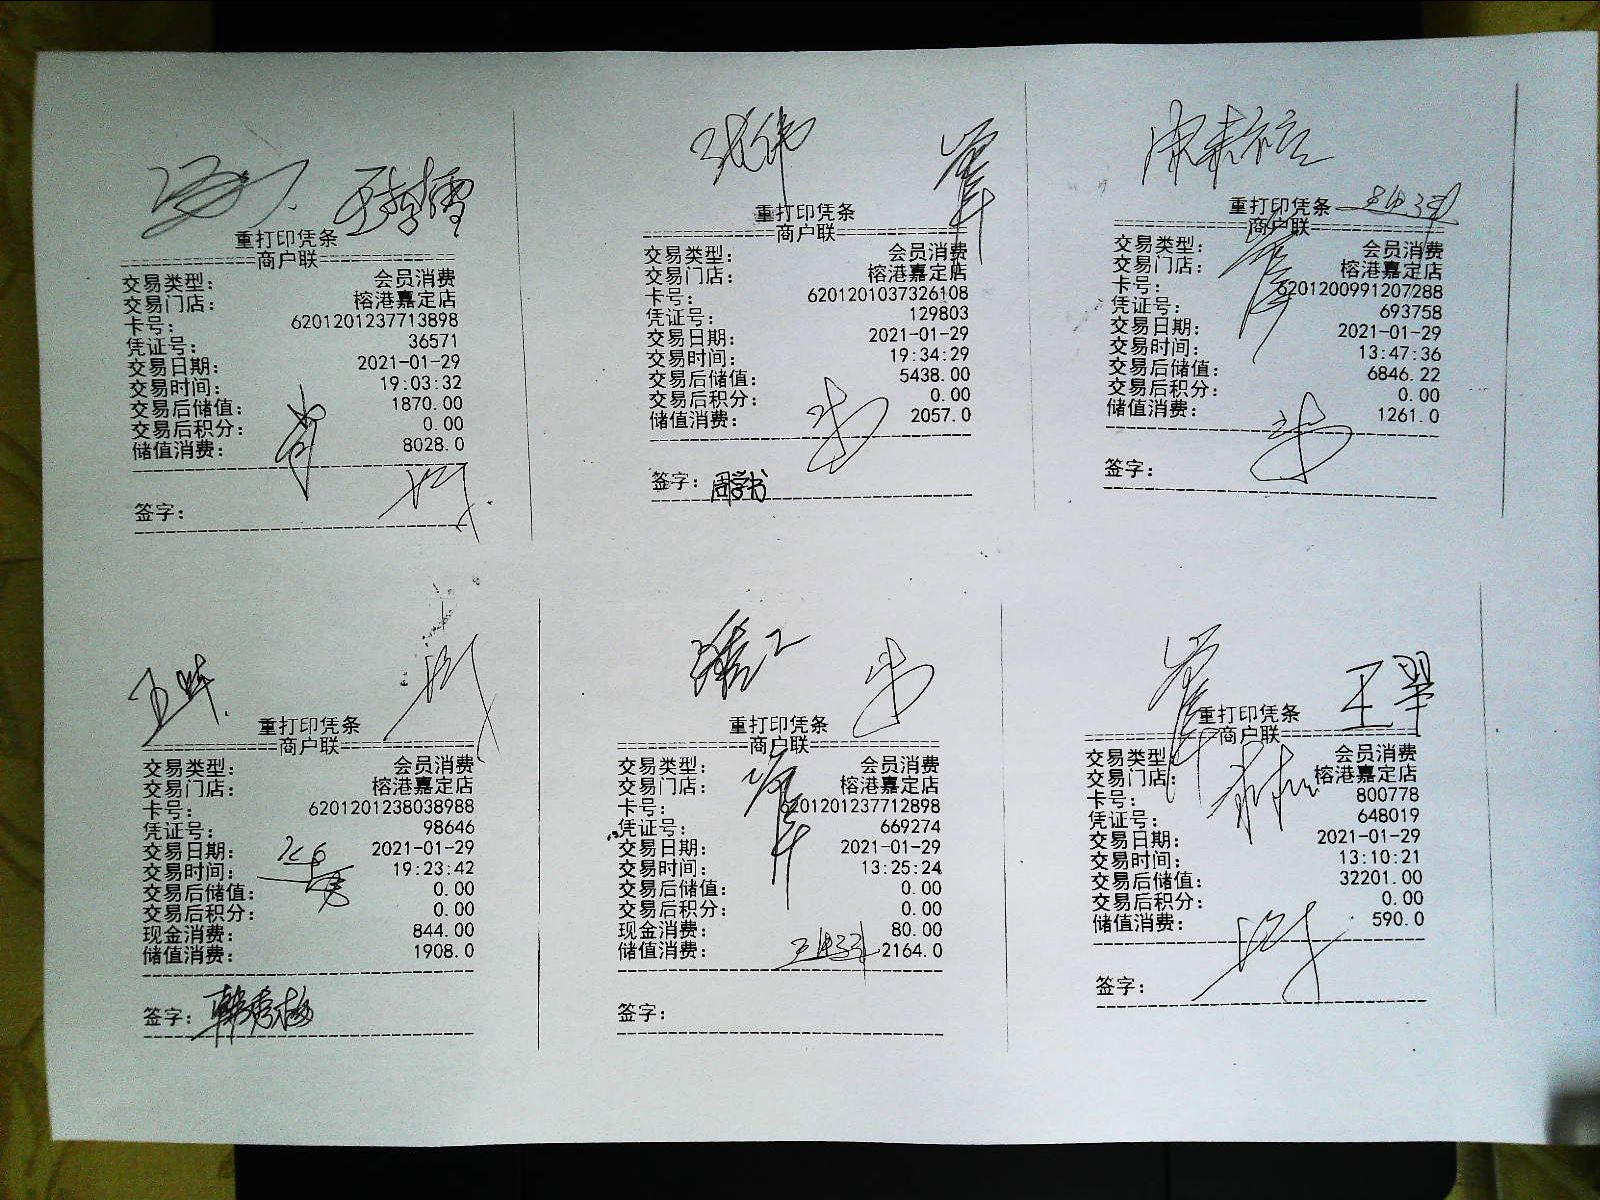 重打印凭条
商户联
交易类型： 会员消费
交易门店： 榕港嘉定店
卡号： 6201201237713898
凭证号： 36571
交易日期： 2021-01-29
交易时间： 19:03:32
交易后储值： 1870.00
交易后积分： 0.00
储值消费： 8028.0
签字：
张伟
重打印凭条
商户联
交易类型： 会员消费
交易门店： 榕港嘉定店
卡号： 6201201037326108
凭证号： 129803
交易日期： 2021-01-29
交易时间： 19:34:29
交易后储值： 5438.00
交易后积分： 0.00
储值消费： 2057.0
签字： 周学书
重打印凭条
商户联
交易类型： 会员消费
交易门店： 榕港嘉定店
卡号： 6201200991207288
凭证号： 693758
交易日期： 2021-01-29
交易时间： 13:47:36
交易后储值： 6846.22
交易后积分： 0.00
储值消费： 1261.0
签字：
重打印凭条
商户联
交易类型： 会员消费
交易门店： 榕港嘉定店
卡号： 6201201238038988
凭证号： 98646
交易日期： 2021-01-29
交易时间： 19:23:42
交易后储值： 0.00
交易后积分： 0.00
现金消费： 844.00
储值消费： 1908.0
签字： 韩秀梅
重打印凭条
商户联
交易类型： 会员消费
交易门店： 榕港嘉定店
卡号： 6201201237712898
凭证号： 669274
交易日期： 2021-01-29
交易时间： 13:25:24
交易后储值： 0.00
交易后积分： 0.00
现金消费： 80.00
储值消费： 2164.0
签字：
王翠
重打印凭条
商户联
交易类型： 会员消费
交易门店： 榕港嘉定店
卡号： 800778
凭证号： 648019
交易日期： 2021-01-29
交易时间： 13:10:21
交易后储值： 32201.00
交易后积分： 0.00
储值消费： 590.0
签字：